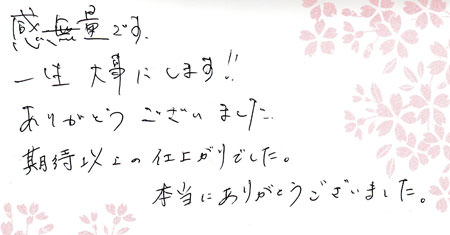 感無量です.
一生 大事にします!!
ありがとう ございました.
期待以上の仕上がりでした。
本当にありがとうございました。